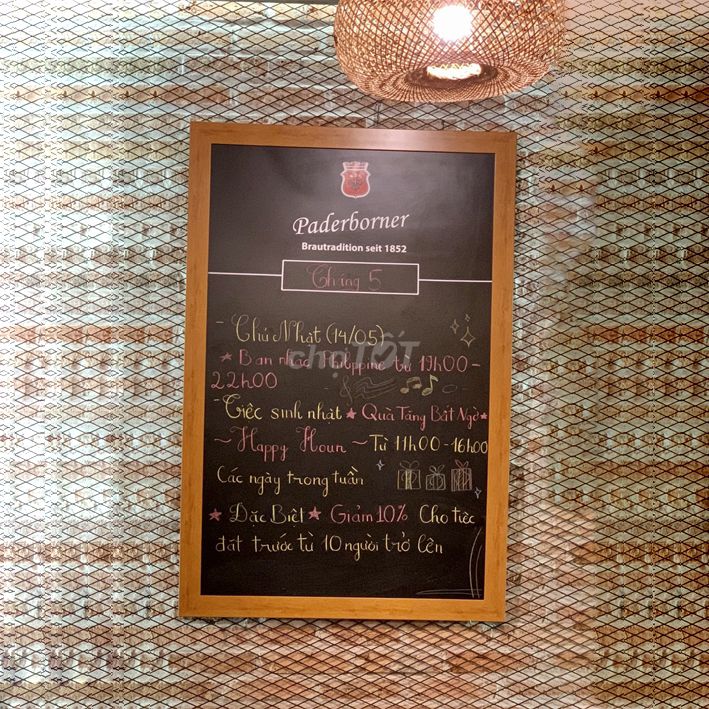 Paderborner
Brautradition seit 1852
Tháng 5
- Chủ Nhật (14/05)
★ Ban nhạc Philippine từ 19h00 -
22h00
chợTỐT
- Tiệc sinh nhật ★ Quà Tặng Bất Ngờ ★
~ Happy Hour ~ Từ 11h00 - 16h00
Các ngày trong tuần
★ Đặc Biệt ★ Giảm 10% Cho tiệc
đặt trước từ 10 người trở lên